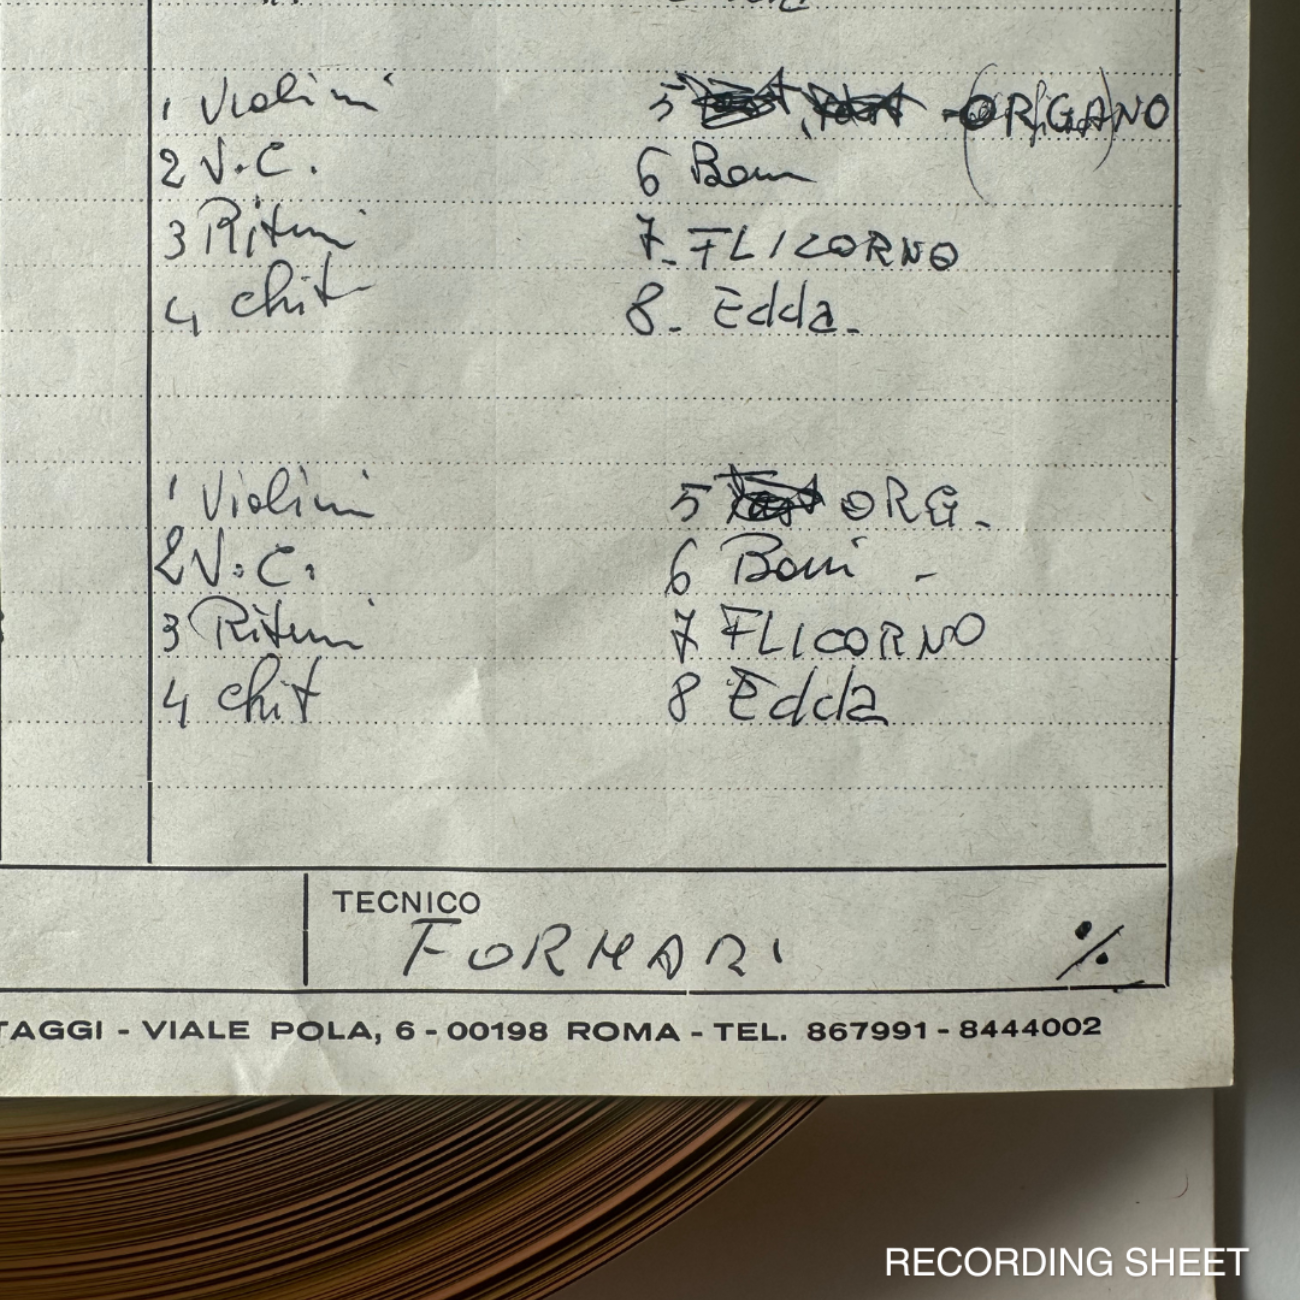 1 Violini
2 V.C.
3 Ritmi
4 chit
5 ORGANO
6 Bom
7. FLICORNO
8. Edda.
1 Violini
2 V.C.
3 Ritmi
4 chit
5 ORG.
6 Boni -
7 FLICORNO
8 Edda
TECNICO
FORNARI
TAGGI - VIALE POLA, 6 - 00198 ROMA - TEL. 867991 - 8444002
RECORDING SHEET